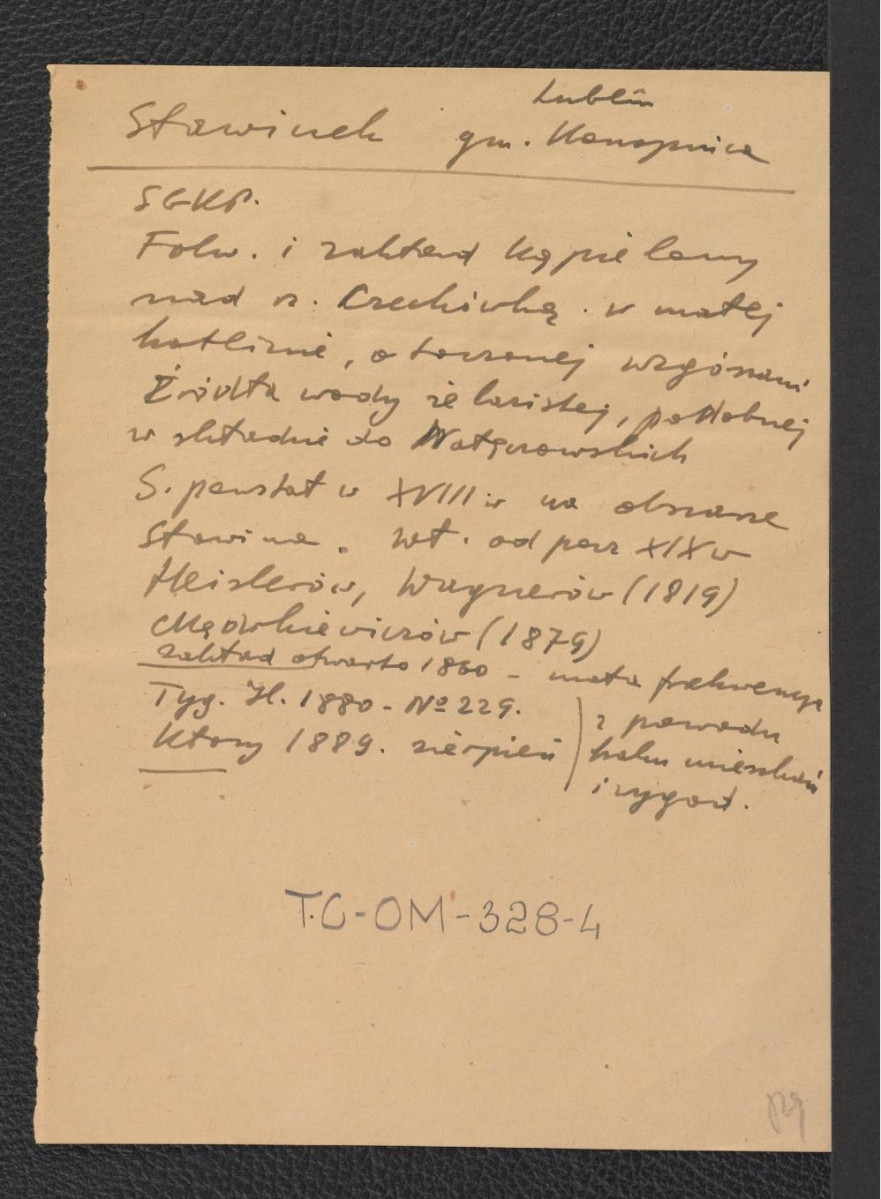 Lublin
Sławinek gm. Konopnica
SGKP.
Folw. i zakład kąpielowy
nad rz. Czechówką. w małej
kotlinie, otoczonej wzgórzami
Źródła wody żelazistej, podobnej
w składzie do Nałęczowskich
S. powstał w XVIII w na obszarze
Sławina. wł. od pocz XIX w
Heislerów, Wagnerów (1819)
Mędrkiewiczów (1879)
zakład otwarto 1860 - mała frekwencja
z powodu
braku mieszkań
i wygod.
Tyg. Il. 1880 - No 229.
Kłosy 1889. sierpień
T.C-OM-328-4